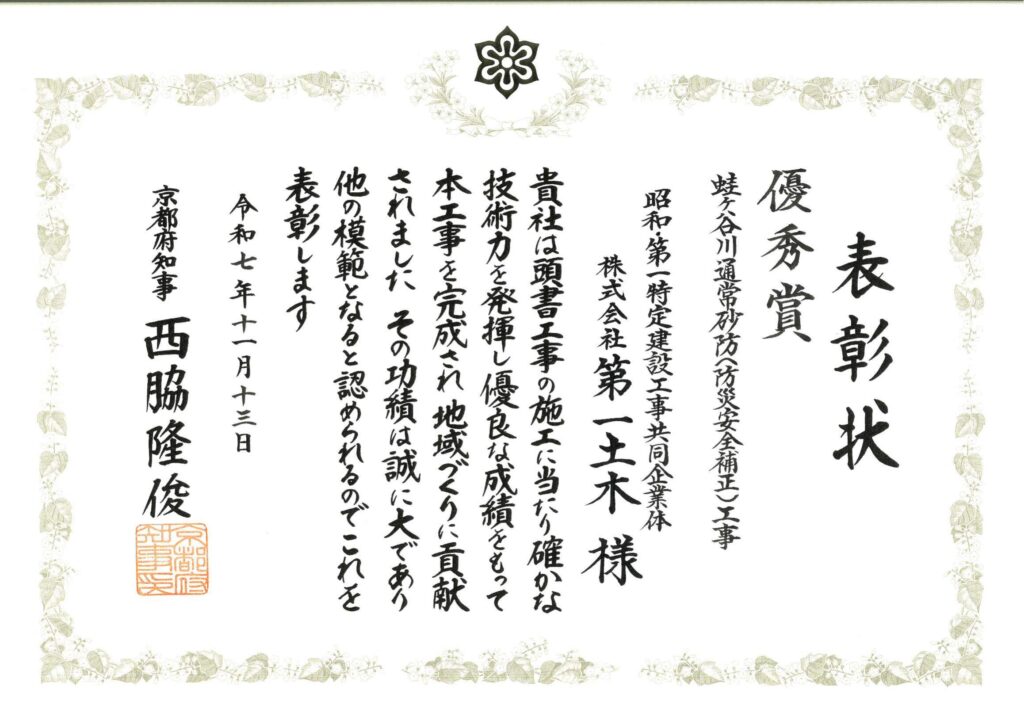 表彰状
優秀賞
蛙ヶ谷川通常砂防(防災安全補正)工事
昭和・第一特定建設工事共同企業体
株式会社 第一土木 様
貴社は頭書工事の施工に当たり確かな
技術力を発揮し優良な成績をもって
本工事を完成され地域づくりに貢献
されました その功績は誠に大であり
他の模範となると認められるのでこれを
表彰します
令和七年十一月十三日
京都府知事 西脇隆俊
京都府知事之印